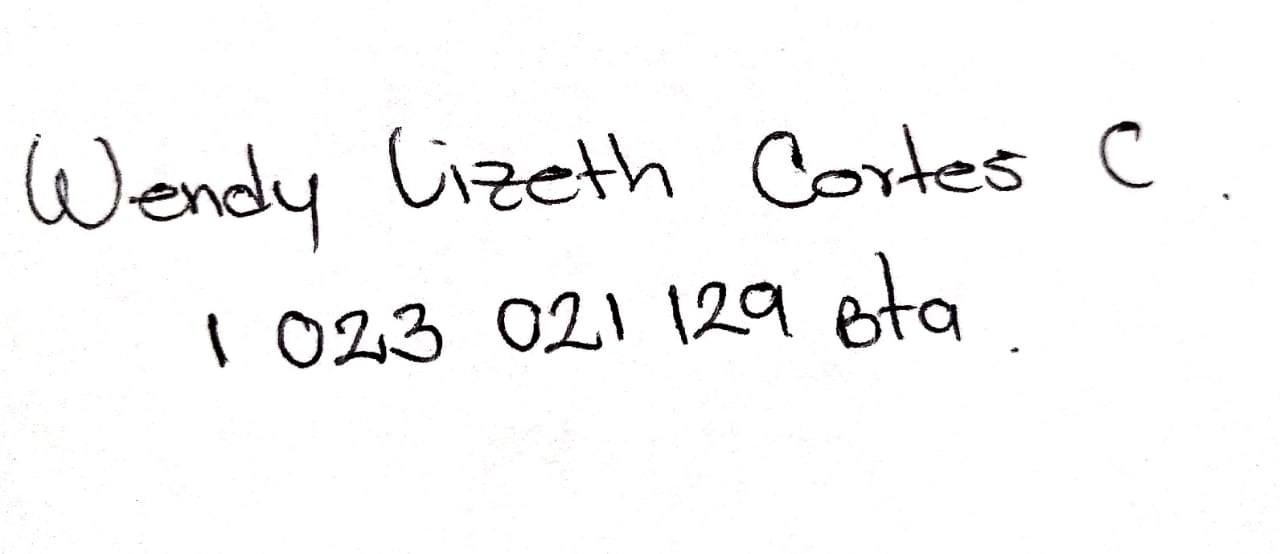 Wendy Lizeth Cortes C.
1 023 021 129 Bta.